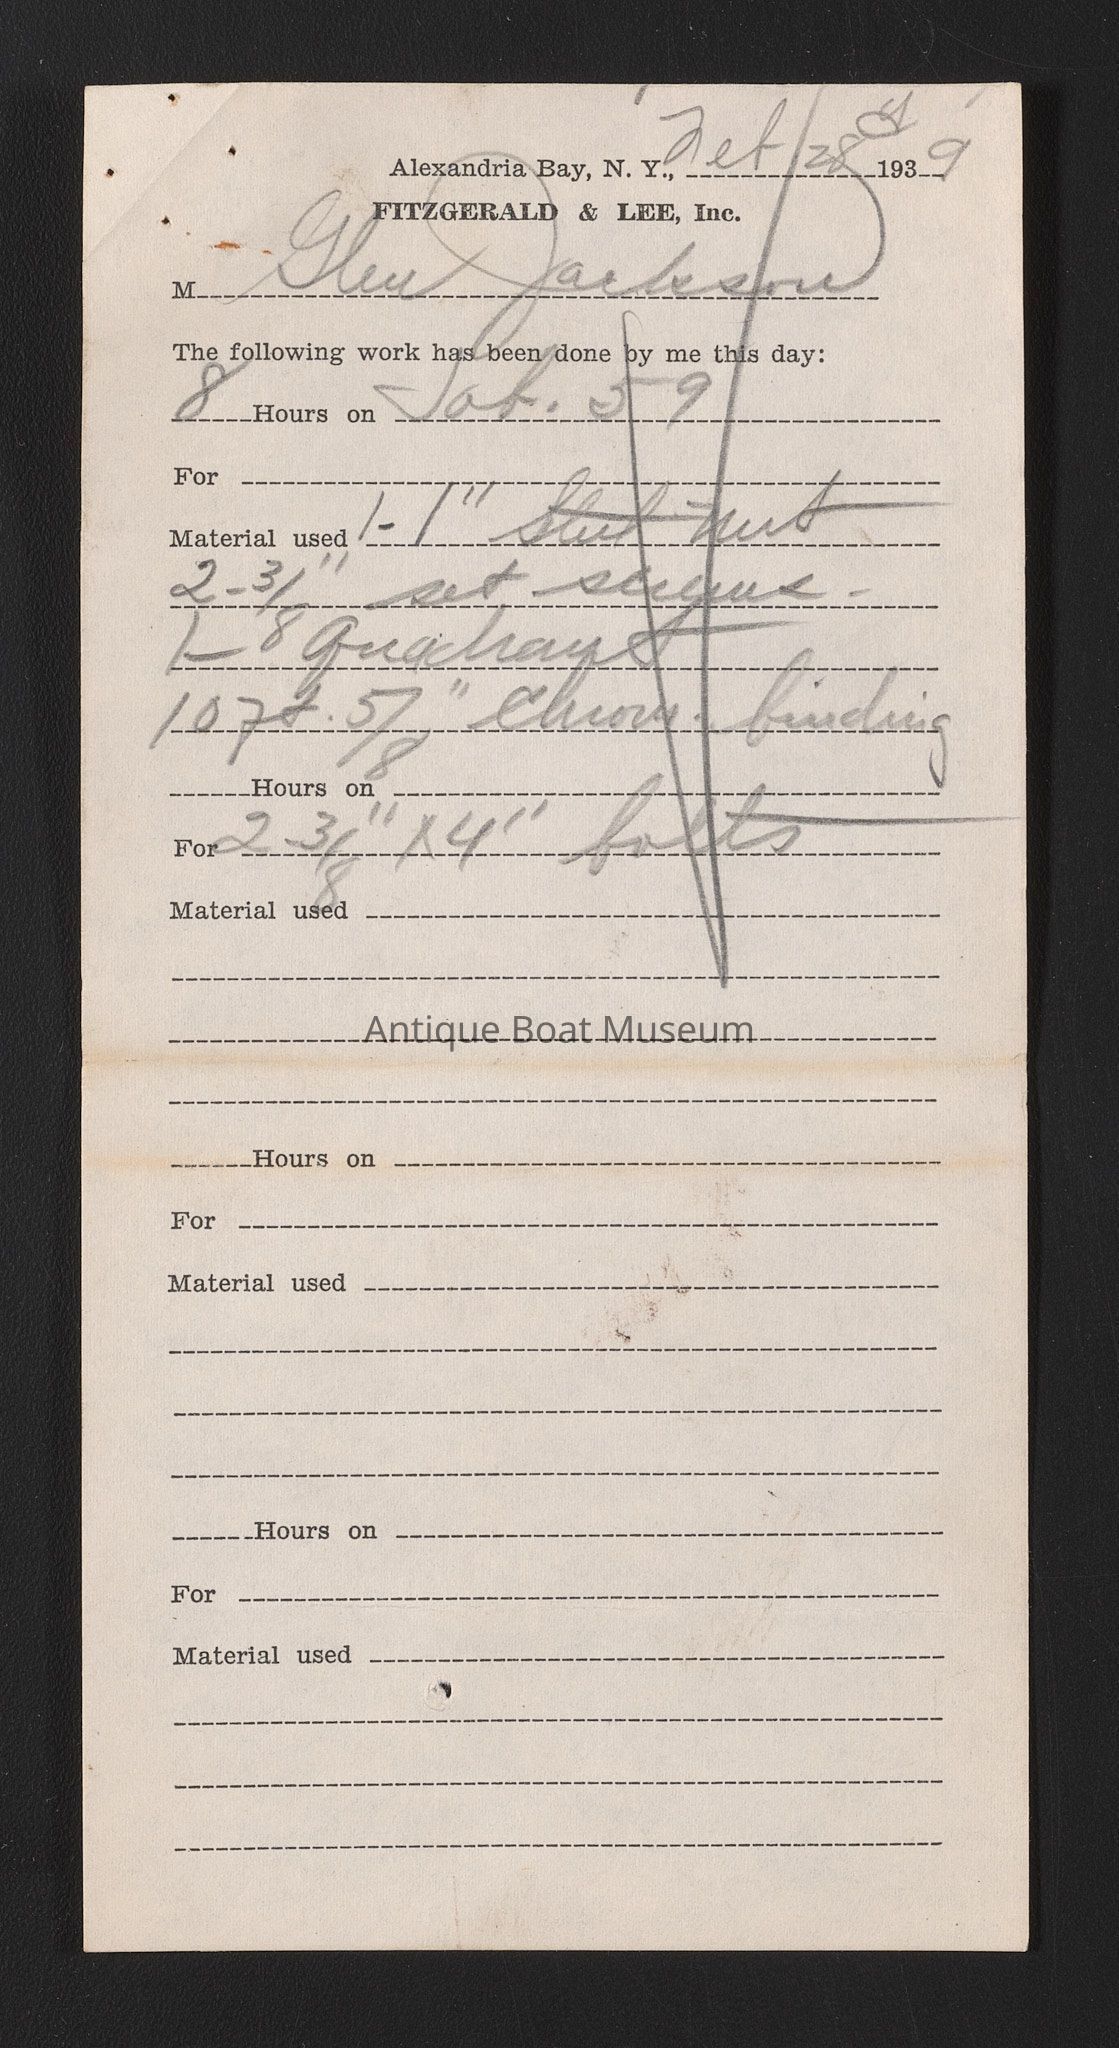 Alexandria Bay, N. Y., Feb 28 1939
FITZGERALD & LEE, Inc.
M Glen Jackson
The following work has been done by me this day:
8 Hours on Job. 59
For
Material used 1-1" Steel nut
2-3/8" set screws-
1- Quadrant
10 7 ft. 5/8" Chrom. binding
Hours on
For 2-3/8" X 4" bolts
Material used
Antique Boat Museum
Hours on
For
Material used
Hours on
For
Material used